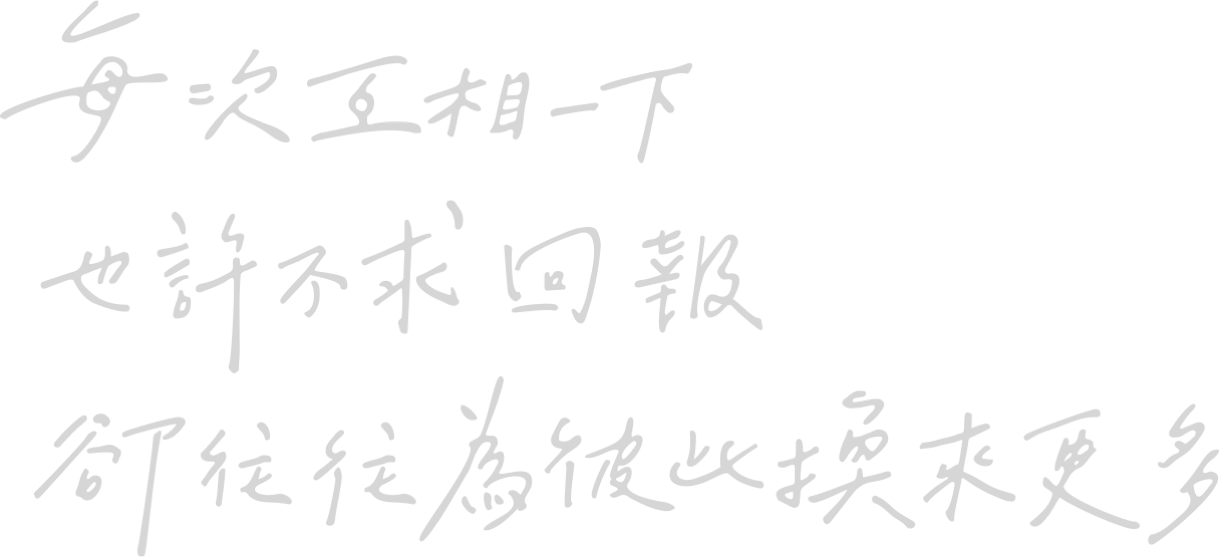 每次互相一下
也許不求回報
卻往往為彼此換來更多